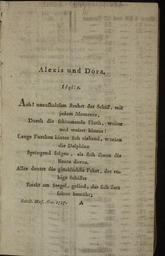 Alexis und Dora.
Idylle.
Ach! unaufhaltsam strebet das Schiff, mit
jedem Momente,
Durch die schäumende Fluth, weiter
und weiter hinaus!
Lange Furchen hinter sich ziehend, worinn
die Delphine
Springend folgen, als flöh ihnen die
Beute davon.
Alles deutet die glücklichste Fahrt, der ru-
hige Schiffer
Ruckt am Seegel, gelind, das sich
bemüht;
A